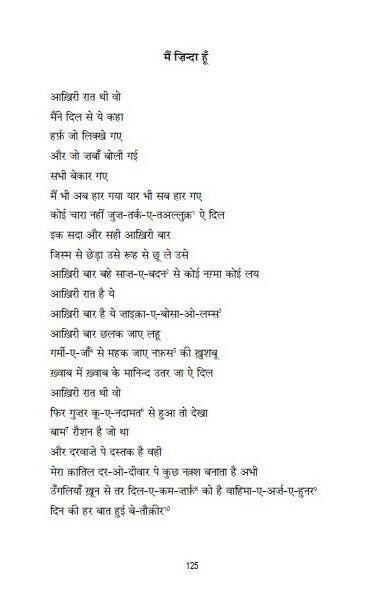 मैं ज़िन्दा हूँ
आख़िरी रात थी वो
मैंने दिल से ये कहा
हर्फ़ जो लिक्खे गए
और जो ज़बाँ बोली गई
सभी बेकार गए
मैं भी अब हार गया यार भी सब हार गए
कोई चारा नहीं जुज़-तर्क-ए-तअल्लुक़¹ ऐ दिल
इक सदा और सही आख़िरी बार
जिस्म से छेड़ा उसे रूह से छू ले उसे
आख़िरी बार बहे साज़-ए-बदन² से कोई नग़्मा कोई लय
आख़िरी रात है ये
आख़िरी बार है ये ज़ाइक़ा-ए-बोसा-ओ-लम्स³
आख़िरी बार छलक जाए लहू
गर्मी-ए-जाँ⁴ से महक जाए नफ़स⁵ की ख़ुशबू
ख़्वाब में ख़्वाब के मानिन्द उतर जा ऐ दिल
आख़िरी रात थी वो
फिर गुज़र कू-ए-नदामत⁶ से हुआ तो देखा
बाम⁷ रौशन है जो था
और दरवाजे पे दस्तक है वही
मेरा क़ातिल दर-ओ-दीवार पे कुछ नक़्श बनाता है अभी
उँगलियाँ ख़ून से तर दिल-ए-कम-ज़र्फ़⁸ को है वाहिमा-ए-अर्ज़-ए-हुनर⁹
दिन की हर बात हुई बे-तौक़ीर¹⁰
125